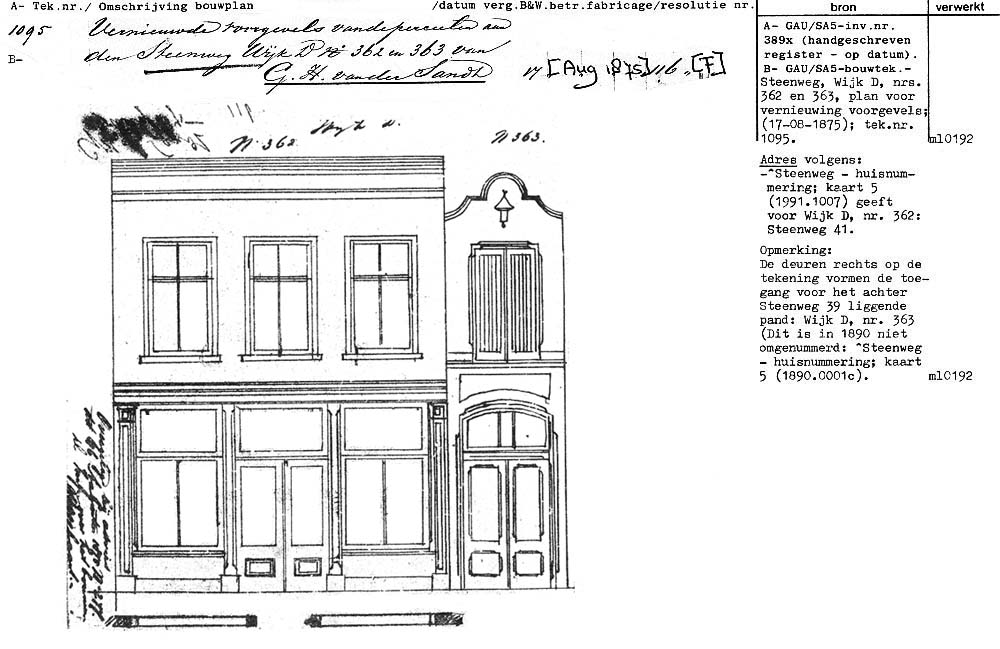 A- Tek.nr./ Omschrijving bouwplan /datum verg.B&W.betr.fabricage/resolutie nr. bron verwerkt
1095 Vernieuwde voorgevels van de perceelen aan
B- den Steenweg Wijk D No 362 en 363 van
G. H. van der Sandt 17 [Aug 1875] 116. [F]
Wijk d.
N 362 N 363.
A- GAU/SA5-inv.nr.
389x (handgeschreven
register - op datum).
B- GAU/SA5-bouwtek.-
Steenweg, Wijk D, nrs.
362 en 363, plan voor
vernieuwing voorgevels;
(17-08-1875); tek.nr.
1095. ml0192
Adres volgens:
-^Steenweg - huisnum-
mering; kaart 5
(1991.1007) geeft
voor Wijk D, nr. 362:
Steenweg 41.
Opmerking:
De deuren rechts op de
tekening vormen de toe-
gang voor het achter
Steenweg 39 liggende
pand: Wijk D, nr. 363
(Dit is in 1890 niet
omgenummerd: ^Steenweg
- huisnummering; kaart
5 (1890.0001c). ml0192